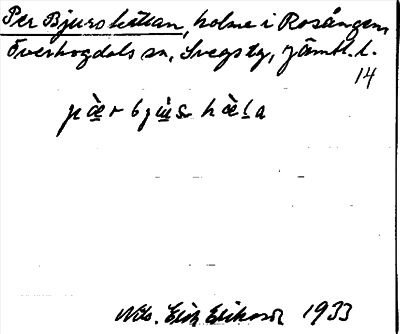 Per Bjurs hällan, holme i Rosången
Överhogdals sn, Svegs tg, Jämtl. l.
14
pæ̀r bjus hæ̀la
Nils. Erik Eriksson 1933